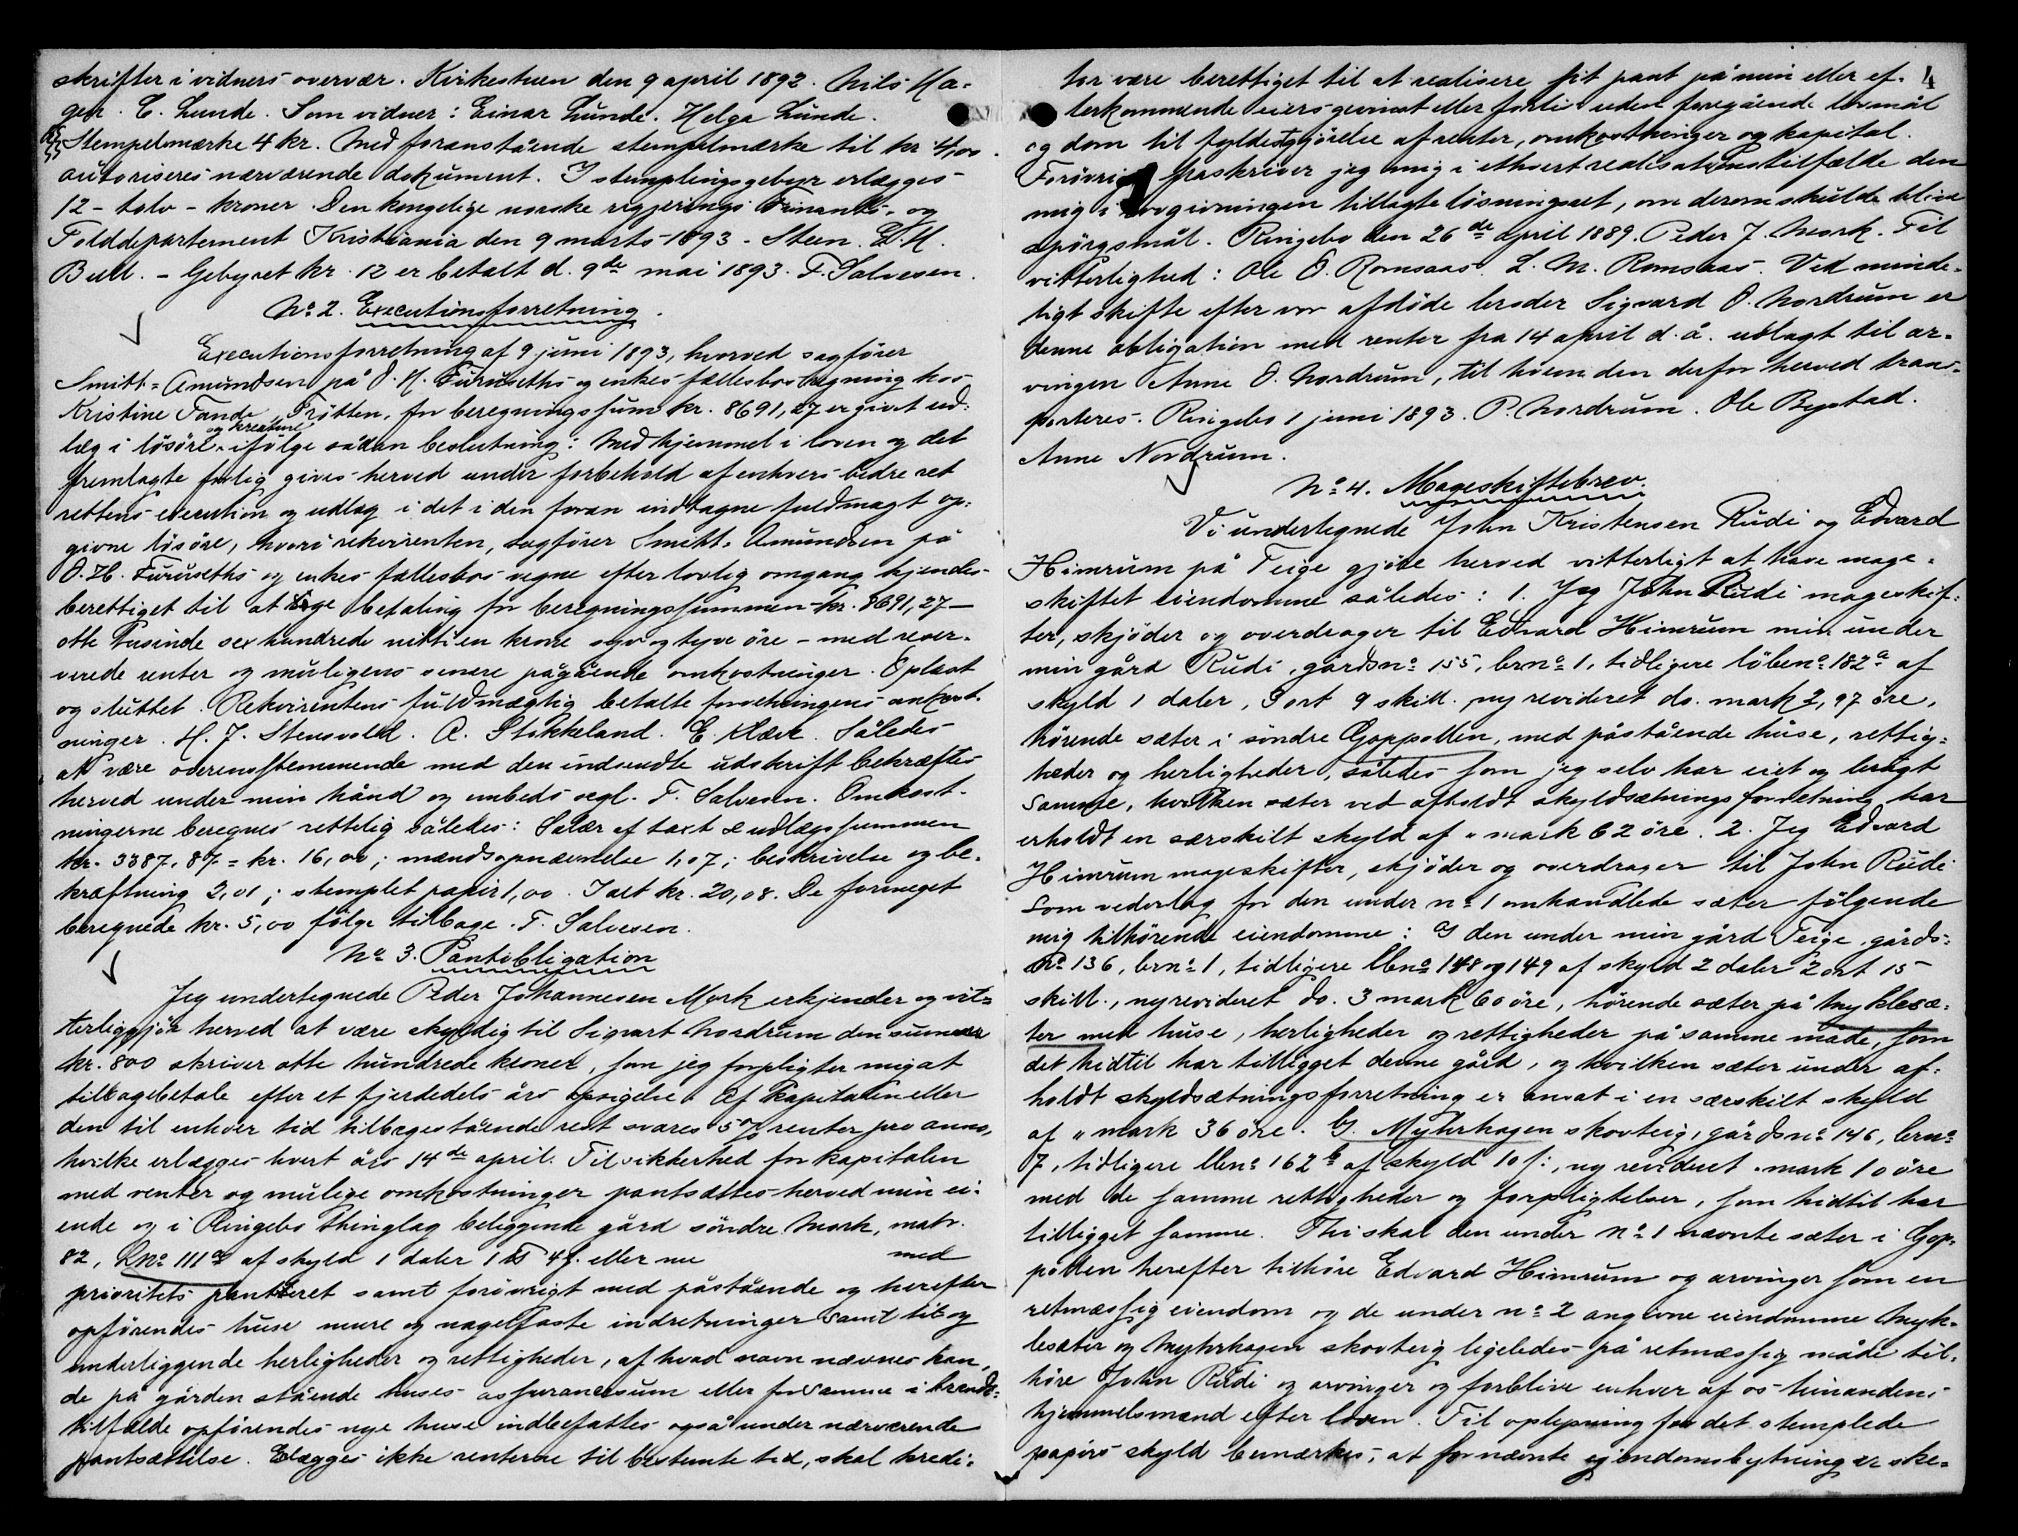 skrifter i vidners overvær. Kirkestuen den 9 april 1892. Nils Ha-
gen. E. Lunde. Som vidner: Einar Lunde. Helga Lunde.
Stempelmærke 4 kr. Med foranstående stempelmærke til kr 4,00
autoriseres nærværende dokument. I stemplingsgebyr erlægges
12 - tolv - kroner. Den kongelige norske regjerings Finants- og
Tolddepartement Kristiania den 9 marts 1893. Steen. E. H.
Bull. - Gebyret kr. 12 er betalt d. 9de mai 1893. T. Salvesen.
No 2. Executionsforretning.
Executionsforretning af 9 juni 1893, hvorved sagfører
Smitt-Amundsen på O. H. Furuseths og enkes fællesbos regning hos
Kristine Tande, Trötten, for beregningssum kr. 8691,27 er givet ud-
læg i lösöre og kreature ifölge sådan beslutning: Med hjemmel i loven og det
fremlagte forlig gives herved under forbehold af enhvers bedre ret
rettens execution og udlæg i det i den foran indtagne fuldmagt op-
givne lösöre, hvori rekvirenten, sagfører Smitt-Amundsen på
O. H. Furuseths og enkes fællesbos vegne efter lovlig omgang kjendes
berettiget til at söge betaling for beregningssummen kr. 8691,27 -
otte tusinde sex hundrede nitti en krone syv og tyve öre - med reser-
verede renter og muligens senere pågående omkostninger. Oplæst
og sluttet. Rekvirentens fuldmægtig betalte forretningens omkost-
ninger. H. J. Stensvold. A. Stokkeland. E. Klæve. Således
at være overensstemmende med den indsendte udskrift bekræftes
herved under min hånd og embeds segl. T. Salvesen. Omkost-
ningerne beregnes rettelig således: Salær af taxt & udlægssummen
kr. 3387,87 = kr. 16,00; mændsopnævnelse 1,07; beskrivelse og be-
kræftning 2,01; stemplet papir 1,00. Ialt kr. 20,08. De formeget
beregnede kr. 5,00 fölge tilbage. T. Salvesen.
No 3. Pantobligation
Jeg undertegnede Peder Johannesen Mork erkjender og vit-
terliggjör herved at være skyldig til Sigvart Nordrum den summa
kr. 800 skriver otte hundrede kroner, som jeg forpligter mig at
tilbagebetale efter et fjerdedels års opsigelse. Af kapitalen eller
den til enhver tid tilbagestående rest svares 5% renter pro anno,
hvilke erlægges hvert års 14de april. Til sikkerhed for kapitalen
med renter og mulige omkostninger pantsættes herved min ei-
ende og i Ringebo thinglag beliggende gård söndre Mork, matr.
82, Lno 111a af skyld 1 daler 1 ort 4 s. eller nu med
prioritets panteret samt forövrigt med påstående og herefter
opförendes huse mure og nagelfaste indretninger samt til og
underliggende herligheder og rettigheder, af hvad navn nævnes kan,
de på gården stående huses assurancesum eller for samme i brand-
tilfælde opförendes nye huse indbefattes også under nærværende
pantsættelse. Erlægges ikke renterne til bestemte tid, skal kredi-
4
tor være berettiget til at realisere sit pant på min eller ef-
terkommende eiers gevinst eller forlis uden foregående lovmål
og dom til fyldestgjörelse af renter, omkostninger og kapital.
Forövrigt fraskriver jeg mig i ethvert realisationstilfælde den
mig i lovgivningen tillagte lösningsret, om derom skulde blive
spörgsmål. Ringebo den 26de april 1889. Peder J. Mork. Til
vitterlighed: Ole O. Romsaas. L. M. Romsaas. Ved minde-
ligt skifte efter vor afdöde broder Sigvard O. Nordrum er
denne obligation med renter fra 14 april d. å. udlagt til ar-
vingen Anne O. Nordrum, til hvem den derfor herved trans-
porteres. Ringebo 1 juni 1893. P. Nordrum. Ole Bystad.
Anne Nordrum.
No 4. Mageskiftebrev.
Vi undertegnede John Kristensen Rudi og Edvard
Himrum på Teige gjöre herved vitterligt at have mage-
skiftet eiendomme således: 1. Jeg John Rudi mageskif-
ter, skjöder og overdrager til Edvard Himrum min under
min gård Rudi, gårdsno 155, brno 1, tidligere löbeno 182a af
skyld 1 daler, 3 ort 9 skill. ny revideret do. mark 2,97 öre,
hörende sæter i söndre Goppollen, med påstående huse, rettig-
heder og herligheder, således som jeg selv har eiet og brugt
samme, hvilken sæter ved afholdt skyldsætningsforretning har
erholdt en særskilt skyld af " mark 62 öre. 2. Jeg Edvard
Himrum mageskifter, skjöder og overdrager til John Rudi
som vederlag for den under no 1 omhandlede sæter fölgende
mig tilhörende eiendomme: I den under min gård Teige, gårds-
no 136, brno 1, tidligere lbno 148 og 149 af skyld 2 daler 2 ort 15
skill., ny revideret do. 3 mark 60 öre, hörende sæter på Myklesæ-
ter med huse, herligheder og rettigheder på samme måde, som
det hidtil har tilligget denne gård, og hvilken sæter under af-
holdt skyldsætningsforretning er ansat i en særskilt skyld
af " mark 36 öre. I. Myhrhagen skovteig, gårdsno 146, brno
7, tidligere lbno 162b af skyld 10 s:, ny revideret . mark 10 öre
med de samme rettigheder og forpligtelser, som hidtil har
tilligget samme. Thi skal den under no 1 nævnte sæter i Gop-
pollen herefter tilhöre Edvard Himrum og arvinger som en
retmæssig eiendom og de under no 2 angivne eiendomme Myk-
lesæter og Myhrhagen skovteig ligeledes på retmæssig måde til-
höre John Rudi og arvinger og forblive enhver af os hinandens
hjemmelsmænd efter loven. Til oplysning for det stemplede
papirs skyld bemærkes, at fornævnte ejendomsbytning er ske-